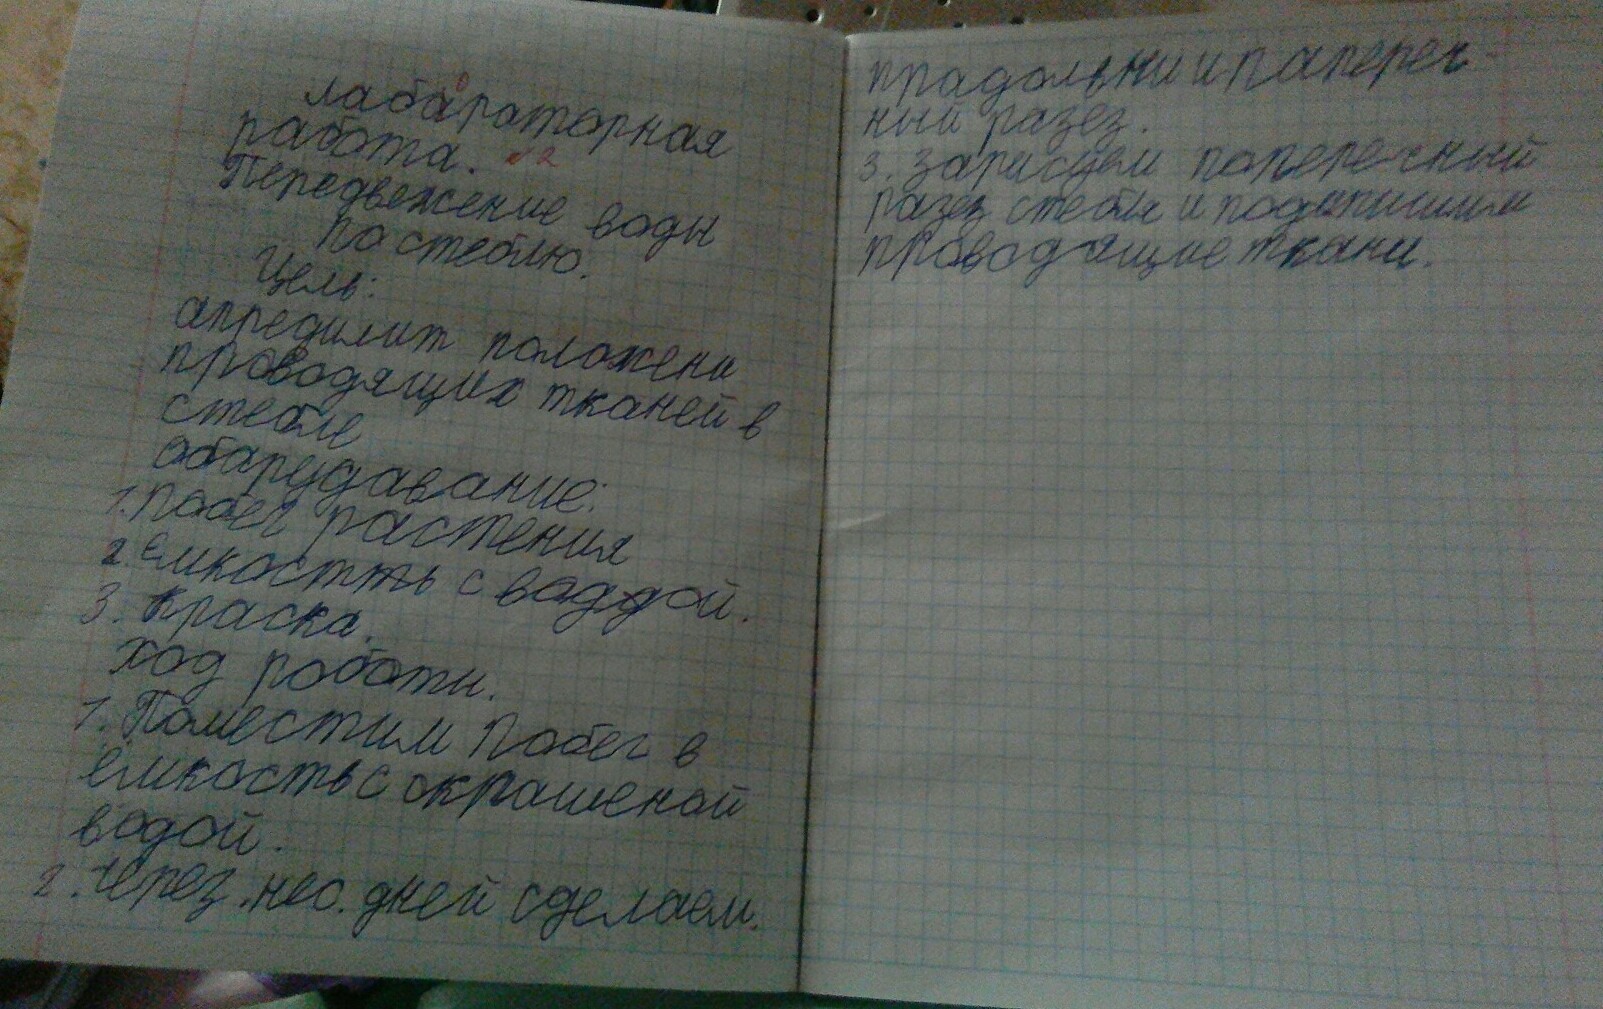 лабараторная
о
работа. №2
Передвежение воды
по стеблю.
Цель:
апредилит положени
проводящих тканей в
стебле
абарудавание:
1. Побег растения
2. Ёмкостть с ваддой.
3. краска.
Ход работы.
1. Поместим побег в
ёмкость с окрашеной
водой.
2. Через .нес. дней сделаем.
прадольни и папереч-
ный разез.
3. Зарисуем поперечный
разез стебля и подапишим
проводящие ткани.